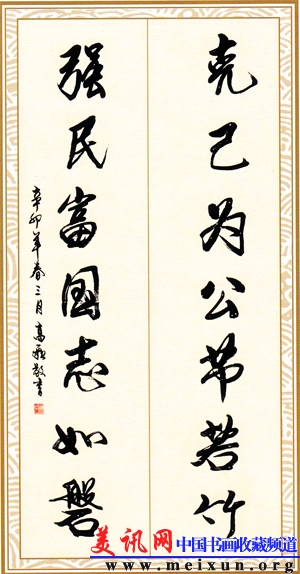 克己为公节若竹
强民富國志如磐
辛卯年春三月 高 敬书
美讯网 中国书画收藏频道
www.meixun.org